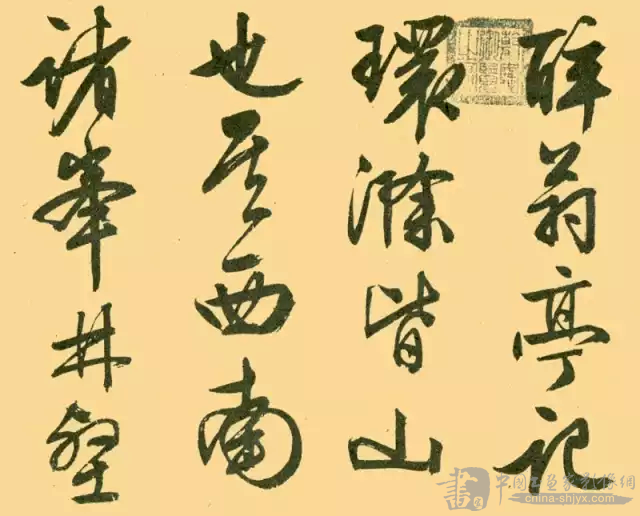 醉翁亭記
環滁皆山
也其西南
諸峯林壑
中国书画家影像網
china-shjyx.com